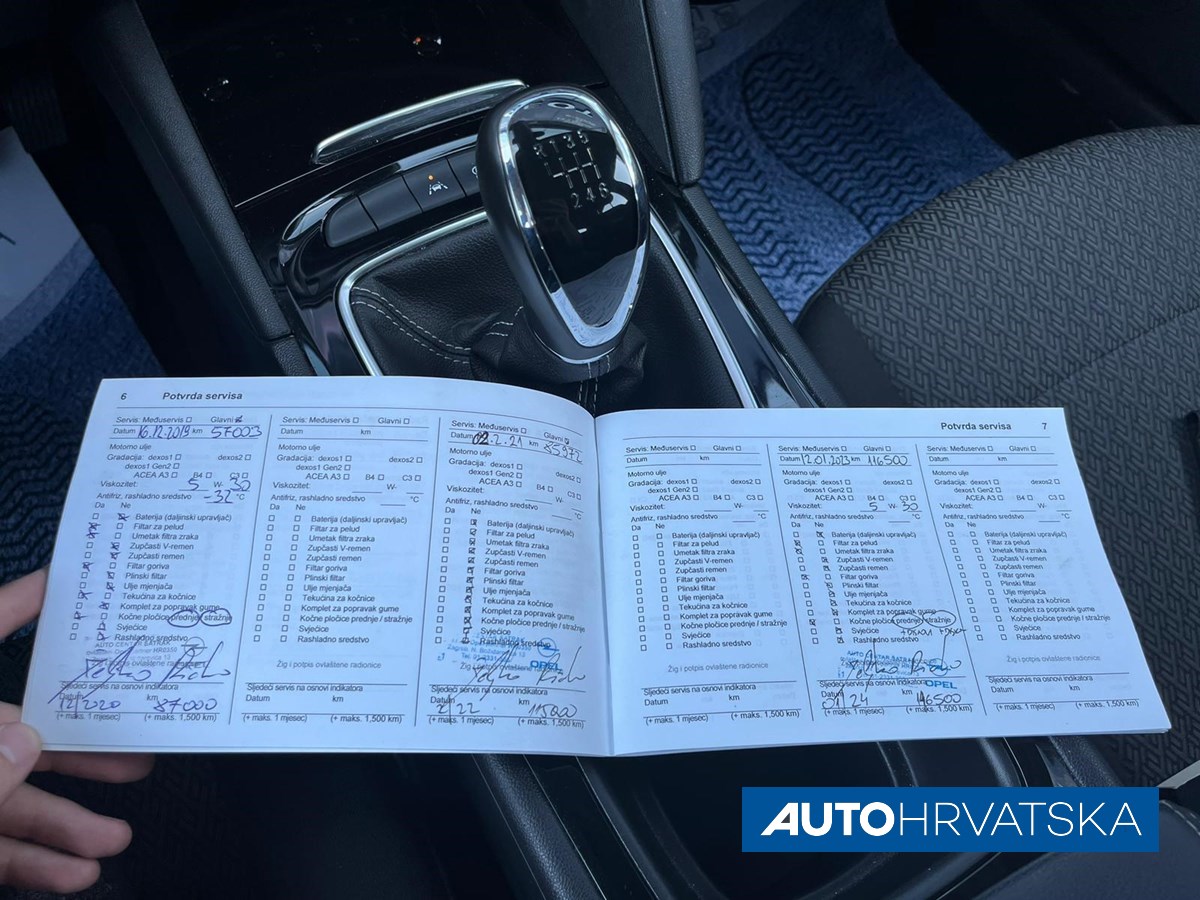 R 1 3 5
2 4 6
6 Potvrda servisa
Servis: Međuservis □ Glavni
Datum 16.12.2019 km 57003
Motorno ulje
Gradacija: dexos1 □ dexos2 □
dexos1 Gen2 □
ACEA A3 □ B4 □ C3 □
Viskozitet: 5 W- 30
Antifriz, rashladno sredstvo -32 °C
Da Ne
Baterija (daljinski upravljač)
Filtar za pelud
Umetak filtra zraka
Zupčasti V-remen
Zupčasti remen
Filtar goriva
Plinski filtar
Ulje mjenjača
Tekućina za kočnice
Komplet za popravak gume
Kočne pločice prednje / stražnje
Svjećice
Rashladno sredstvo
Žig i potpis ovlaštene radionice
Sljedeći servis na osnovi indikatora
Datum km
12/2020 87000
(+ maks. 1 mjesec) (+ maks. 1,500 km)
Servis: Međuservis □ Glavni □
Datum km
Motorno ulje
Gradacija: dexos1 □ dexos2 □
dexos1 Gen2 □
ACEA A3 □ B4 □ C3 □
Viskozitet: W-
Antifriz, rashladno sredstvo °C
Da Ne
Baterija (daljinski upravljač)
Filtar za pelud
Umetak filtra zraka
Zupčasti V-remen
Zupčasti remen
Filtar goriva
Plinski filtar
Ulje mjenjača
Tekućina za kočnice
Komplet za popravak gume
Kočne pločice prednje / stražnje
Svjećice
Rashladno sredstvo
Žig i potpis ovlaštene radionice
Sljedeći servis na osnovi indikatora
Datum km
(+ maks. 1 mjesec) (+ maks. 1,500 km)
Servis: Međuservis □ Glavni
Datum 02.2.21 km 85972
Motorno ulje
Gradacija: dexos1 □ dexos2 □
dexos1 Gen2 □
ACEA A3 □ B4 □ C3 □
Viskozitet: W-
Antifriz, rashladno sredstvo °C
Da Ne
Baterija (daljinski upravljač)
Filtar za pelud
Umetak filtra zraka
Zupčasti V-remen
Zupčasti remen
Filtar goriva
Plinski filtar
Ulje mjenjača
Tekućina za kočnice
Komplet za popravak gume
Kočne pločice prednje / stražnje
Svjećice
Rashladno sredstvo
OPEL
Žig i potpis ovlaštene radionice
Sljedeći servis na osnovi indikatora
Datum km
2/22 115000
(+ maks. 1 mjesec) (+ maks. 1,500 km)
Potvrda servisa 7
Servis: Međuservis □ Glavni □
Datum km
Motorno ulje
Gradacija: dexos1 □ dexos2 □
dexos1 Gen2 □
ACEA A3 □ B4 □ C3 □
Viskozitet: W-
Antifriz, rashladno sredstvo °C
Da Ne
Baterija (daljinski upravljač)
Filtar za pelud
Umetak filtra zraka
Zupčasti V-remen
Zupčasti remen
Filtar goriva
Plinski filtar
Ulje mjenjača
Tekućina za kočnice
Komplet za popravak gume
Kočne pločice prednje / stražnje
Svjećice
Rashladno sredstvo
Žig i potpis ovlaštene radionice
Sljedeći servis na osnovi indikatora
Datum km
(+ maks. 1 mjesec) (+ maks. 1,500 km)
Servis: Međuservis □ Glavni □
Datum 12.01.2023 km 116500
Motorno ulje
Gradacija: dexos1 □ dexos2 □
dexos1 Gen2 □
ACEA A3 □ B4 □ C3 □
Viskozitet: 5 W- 30
Antifriz, rashladno sredstvo °C
Da Ne
Baterija (daljinski upravljač)
Filtar za pelud
Umetak filtra zraka
Zupčasti V-remen
Zupčasti remen
Filtar goriva
Plinski filtar
Ulje mjenjača
Tekućina za kočnice
Komplet za popravak gume
Kočne pločice prednje / stražnje
Svjećice
Rashladno sredstvo
OPEL
Sljedeći servis na osnovi indikatora
Datum km
01/24 146500
(+ maks. 1 mjesec) (+ maks. 1,500 km)
Servis: Međuservis □ Glavni □
Datum km
Motorno ulje
Gradacija: dexos1 □ dexos2 □
dexos1 Gen2 □
ACEA A3 □ B4 □ C3 □
Viskozitet: W-
Antifriz, rashladno sredstvo °C
Da Ne
Baterija (daljinski upravljač)
Filtar za pelud
Umetak filtra zraka
Zupčasti V-remen
Zupčasti remen
Filtar goriva
Plinski filtar
Ulje mjenjača
Tekućina za kočnice
Komplet za popravak gume
Kočne pločice prednje / stražnje
Svjećice
Rashladno sredstvo
Žig i potpis ovlaštene radionice
Sljedeći servis na osnovi indikatora
Datum km
(+ maks. 1 mjesec) (+ maks. 1,500 km)
AUTOHRVATSKA